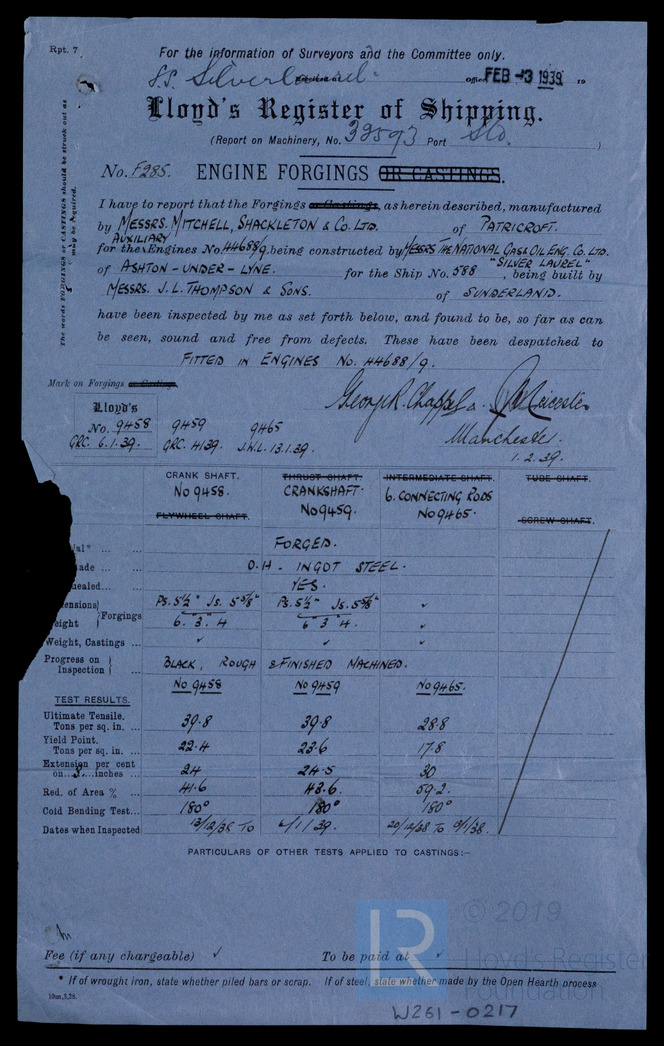 Rpt. 7
For the information of Surveyors and the Committee only.
S.S. Silverlaurel. Office FEB -3 1939 19
Lloyd's Register of Shipping.
(Report on Machinery, No. 32593 Port Sld. )
No. F285. ENGINE FORGINGS OR CASTINGS.
The words FORGINGS or CASTINGS should be struck out as may be required.
I have to report that the Forgings or Castings, as herein described, manufactured
by MESSRS. MITCHELL, SHACKLETON & CO. LTD. of PATRICROFT.
AUXILIARY
for the Engines No. 44688/9. being constructed by MESSRS THE NATIONAL GAS & OIL ENG. CO. LTD.
of ASHTON-UNDER-LYNE. for the Ship No. 588 "SILVER LAUREL", being built by
MESSRS. J. L. THOMPSON & SONS. of SUNDERLAND.
have been inspected by me as set forth below, and found to be, so far as can
be seen, sound and free from defects. These have been despatched to
FITTED IN ENGINES NO. 44688/9.
Mark on Forgings or Castings.
George R. Chappel & Leicester
Manchester.
1.2.39.
Lloyd's
No. 9458 9459 9465
GRC. 6.1.39. GRC. 4139. J.W.L. 13.1.39.
CRANK SHAFT. THRUST SHAFT. INTERMEDIATE SHAFT. TUBE SHAFT.
No 9458. CRANKSHAFT. 6. CONNECTING RODS
FLYWHEEL SHAFT. No 9459. No 9465. SCREW SHAFT.
ial* ... ... FORGED.
ade ... ... O.H. INGOT STEEL.
ealed... ... YES.
ensions} Forgings Ps. 5½" Js. 5⅝" Ps. 5½" Js. 5⅝" ✓
eight 6. 3. 4 6 3 4. ✓
Weight, Castings ... ✓ ✓ ✓
Progress on Inspection} ... BLACK, ROUGH & FINISHED MACHINED.
No 9458 No 9459 No 9465.
TEST RESULTS.
Ultimate Tensile.
Tons per sq. in. ... 39.8 39.8 28.8
Yield Point.
Tons per sq. in. ... 22.4 23.6 17.8
Extension per cent
on...3...inches ... 24 24.5 30
Red. of Area % ... 41.6 43.6. 59.2.
Cold Bending Test... 180° 180° 180°
Dates when Inspected 13/12/38 TO 6/1/39. 20/12/38 TO
PARTICULARS OF OTHER TESTS APPLIED TO CASTINGS:—
Fee (if any chargeable) ✓ To be paid at ✓
* If of wrought iron, state whether piled bars or scrap. If of steel, state whether made by the Open Hearth process
10m,3,38.
LR
© 2019
Lloyd's Register
Foundation
W261-0217